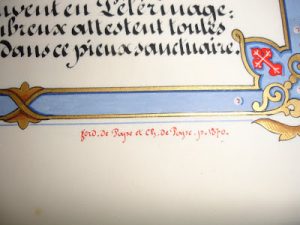 uvent en Pélérinage:
breux attestent toutes
dans ce pieux sanctuaire.
ferd. de Pape et Ch. de Pape. p. 1879.